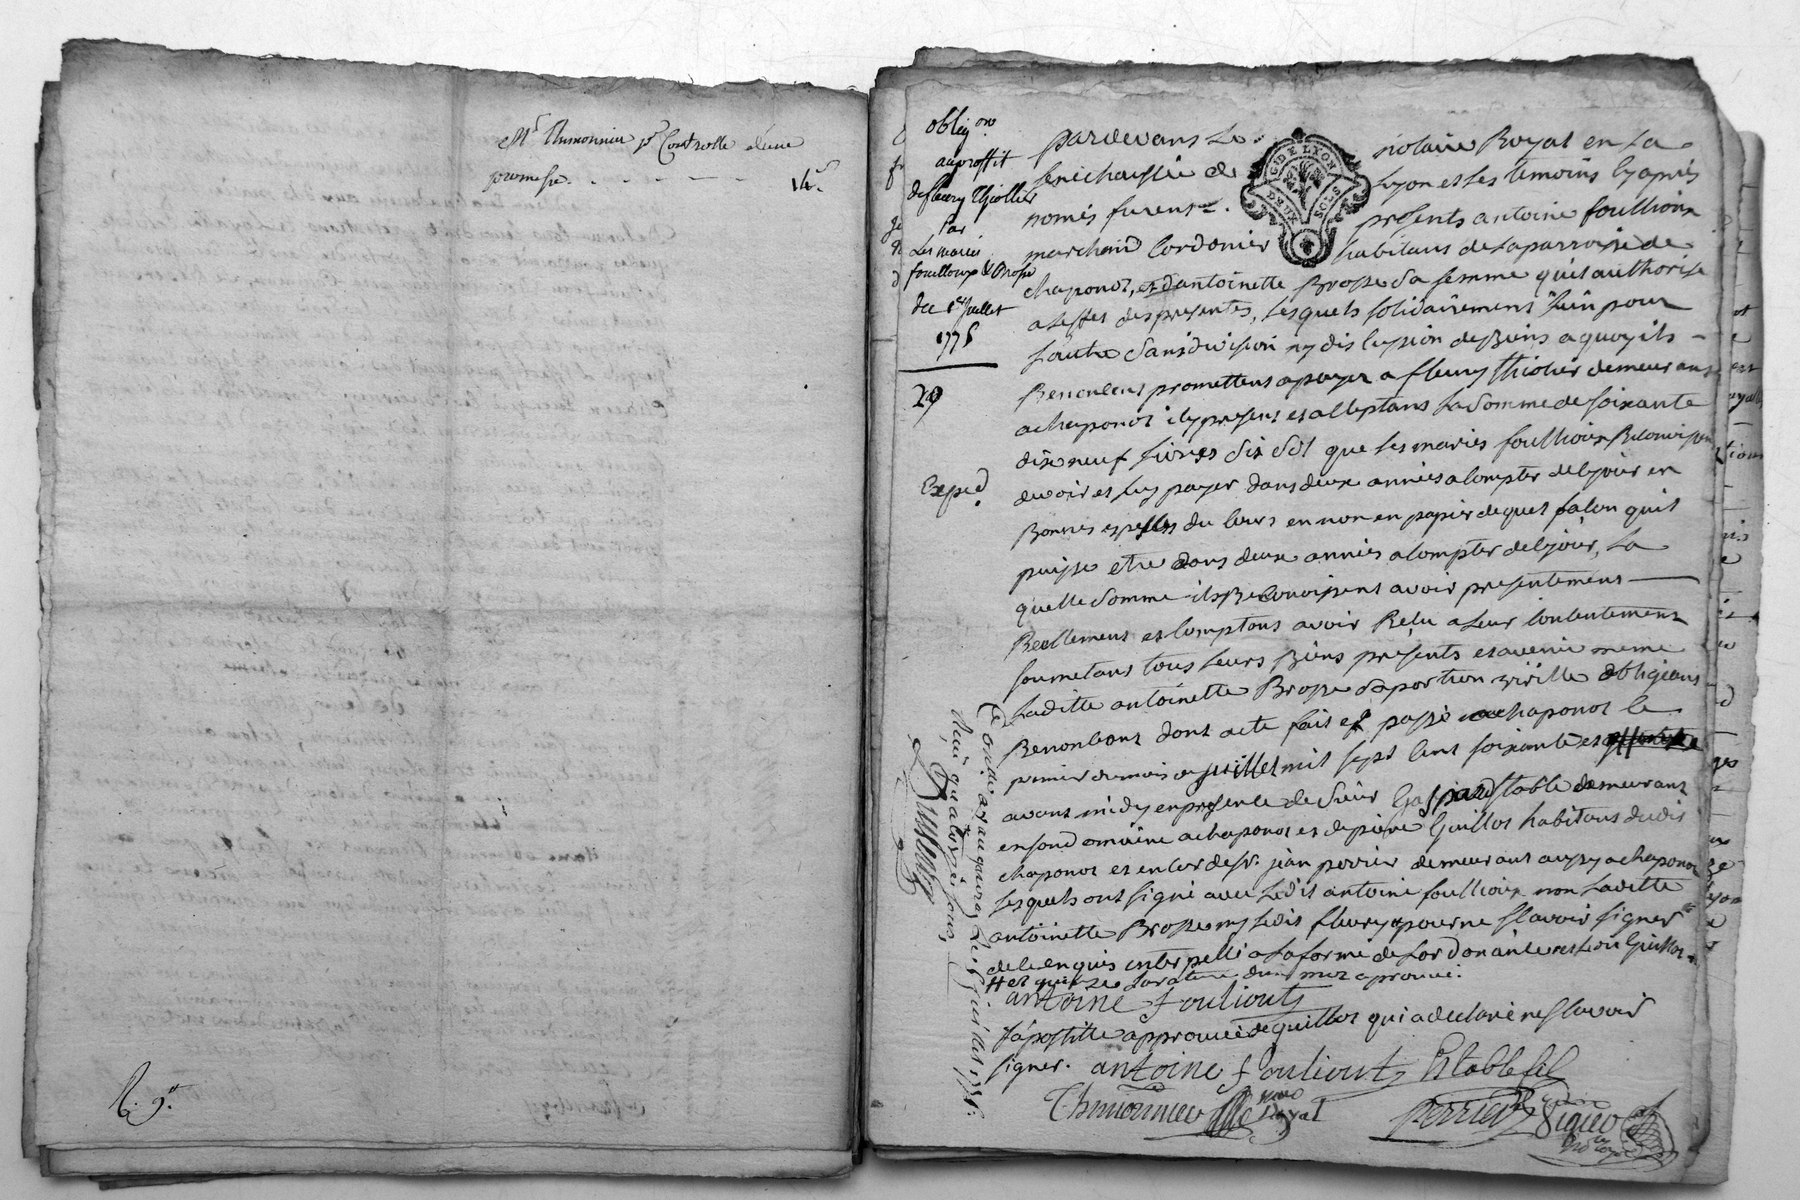 Mr Thimonnier pr Controlle d'une
promesse. - - - - 14s
R. 9s
obligon
au proffit
de fleury Thiollier
Par
Les mariés
foullioux & Brosse
du 1er Juillet
1776
29
Exped.
pardevant Le notaire Royal en La
senechaussée de Lyon et les temoins cy après
només furent presents antoine foullioux
marchand Cordonier habitant de la parroisse de
chaponos, et d'antoinette Brosse sa femme qu'il authorise
a l'effet des presentes, Lesquels solidairement l'un pour
L'autre sans division ny discussion de Biens a quoy ils
Renoncent promettent a payer a fleury thiolier demeurant
a chaponos icy present et acceptant La somme de soixante
dix neuf Livres dix sol que les mariés foullioux Reconoissent
devoir et luy payer dans deux années a compter de ce jour en
Bonnes especes du cours en non en papier de quel facon qu'il
puisse etre dans deux années a compter de ce jour, La
quelle somme ils Reconoissent avoir presentement
Reellement et comptant avoir Reçu a Leur contentement
soumetant tous leurs Biens presents et avenir meme
Laditte antoinette Brosse sa portion virille obligeant
Renonceant dont acte fait et passé a chaponos le
premier du mois de juillet mil sept cent soixante et
avant midy en presence de sieur Gaspard Estable demeurant
en son domaine a chaponos et de pierre Guillot habitant dudit
chaponos et encor de sr. jean perrier demeurant aussy a chaponos
Lesquels ont signé avec Ledit antoine foullioux non Laditte
antoinette Brosse ny ledit fleury pour ne sçavoir signer
de ce enquis interpellé a La forme de Lordonance
antoine fouliout
L'apostille approuvée de guillot qui a declaré ne sçavoir
signer. antoine fouliout Estable fil
Thimonnier nore Royal perrier
Controllé a Brignais Le 9 juillet 1776.
Reçu quatorze sous.